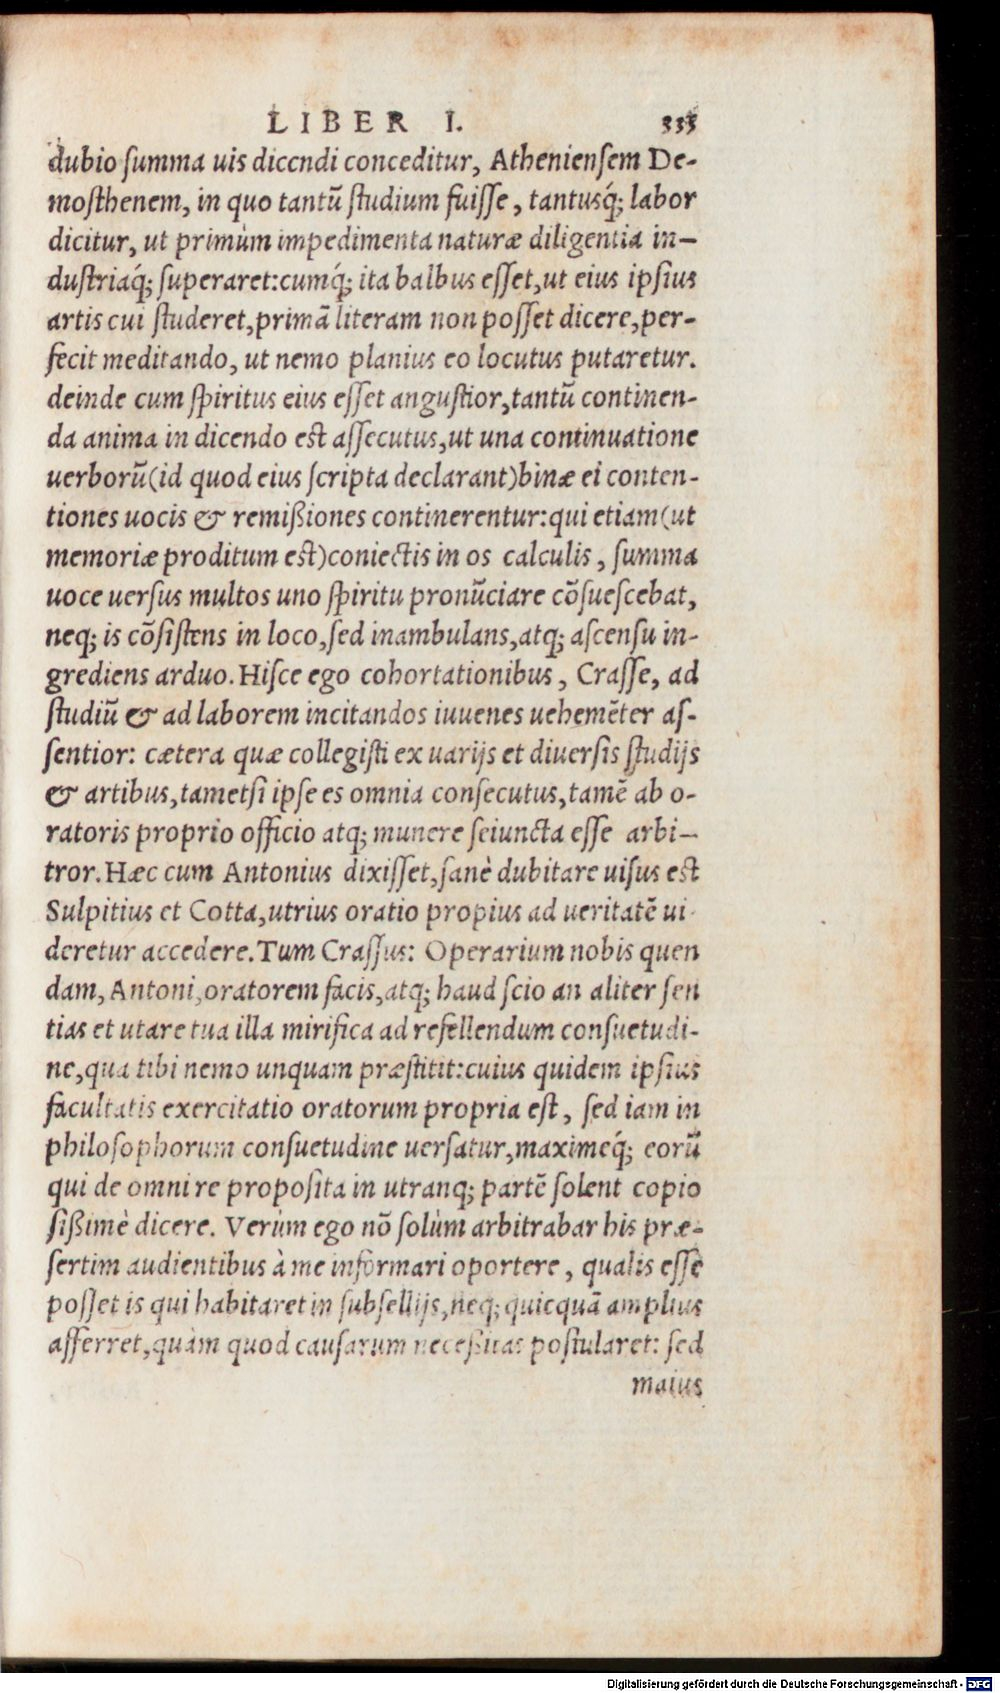 LIBER I. 333
dubio ſumma uis dicendi conceditur, Athenienſem De-
moſthenem, in quo tantũ ſtudium fuiſſe, tantusq́; labor
dicitur, ut primùm impedimenta naturæ diligentia in-
duſtriaq́; ſuperaret: cumq́; ita balbus eſſet, ut eius ipſius
artis cui ſtuderet, primã literam non poſſet dicere, per-
fecit meditando, ut nemo planius eo locutus putaretur.
deinde cum ſpiritus eius eſſet anguſtior, tantũ continen-
da anima in dicendo eſt aſſecutus, ut una continuatione
uerborũ(id quod eius ſcripta declarant)binæ ei conten-
tiones uocis & remißiones continerentur: qui etiam(ut
memoriæ proditum eſt)coniectis in os calculis, ſumma
uoce uerſus multos uno ſpiritu pronũciare cõſueſcebat,
neq; is cõſiſtens in loco, ſed inambulans, atq; aſcenſu in-
grediens arduo. Hiſce ego cohortationibus, Craſſe, ad
ſtudiũ & ad laborem incitandos iuuenes uehemẽter aſ-
ſentior: cætera quæ collegiſti ex uarijs et diuerſis ſtudijs
& artibus, tametſi ipſe es omnia conſecutus, tamẽ ab o-
ratoris proprio officio atq; munere ſeiuncta eſſe arbi-
tror. Hæc cum Antonius dixiſſet, ſanè dubitare uiſus eſt
Sulpitius et Cotta, utrius oratio propius ad ueritatẽ ui-
deretur accedere. Tum Craſſus: Operarium nobis quen
dam, Antoni, oratorem facis, atq; haud ſcio an aliter ſen
tias et utare tua illa mirifica ad refellendum conſuetudi-
ne, qua tibi nemo unquam præſtitit: cuius quidem ipſius
facultatis exercitatio oratorum propria eſt, ſed iam in
philoſophorum conſuetudine uerſatur, maximeq́; eorũ
qui de omni re propoſita in utranq; partẽ ſolent copio
ſißimè dicere. Verùm ego nõ ſolùm arbitrabar his præ-
ſertim audientibus à me informari oportere, qualis eſſe
poſſet is qui habitaret in ſubſellijs, neq; quicquã amplius
afferret, quàm quod cauſarum neceßitas poſtularet: ſed
maius
Digitalisierung gefördert durch die Deutsche Forschungsgemeinschaft - DFG